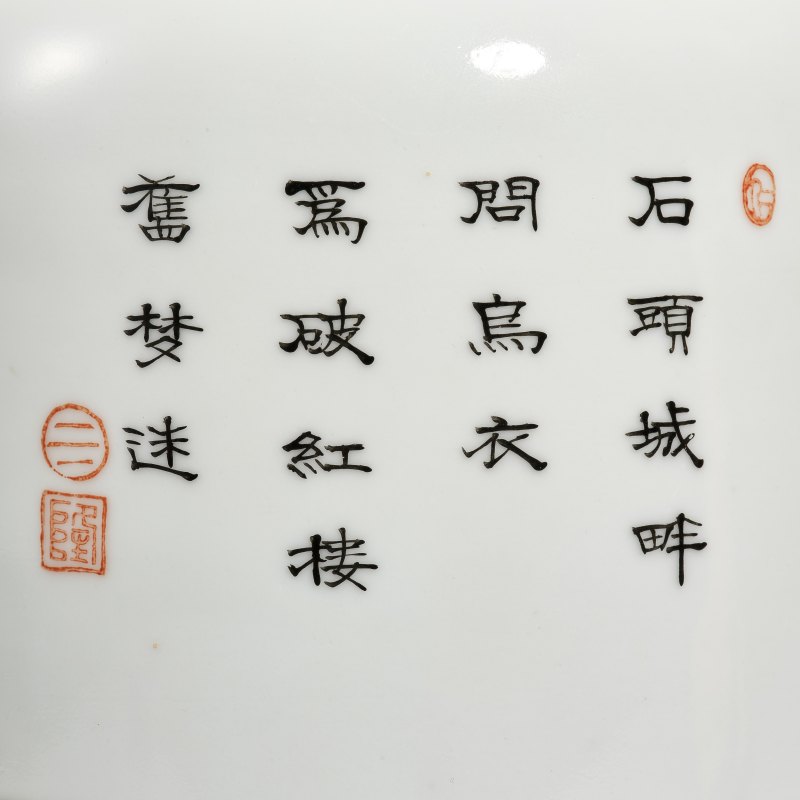 石頭城畔
問烏衣
爲破紅楼
舊梦迷